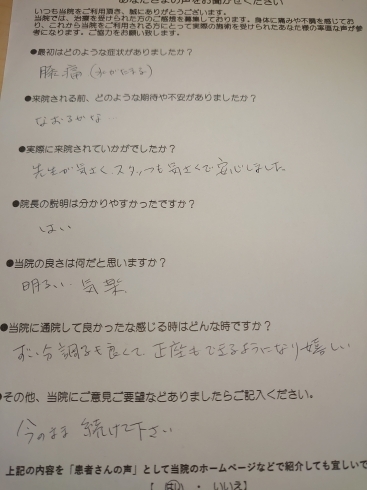 あなたさまの声をお聞かせください
いつも当院をご利用頂き、誠にありがとうございます。
当院では、治療を受けられた方のご感想を募集しております。身体に痛みや不調を感じてお
り、これから当院をご利用される方にとって実際の施術を受けられたあなた様の率直な声が参
考になります。ご協力をお願い致します。
●最初はどのような症状がありましたか？
膝痛
●来院される前、どのような期待や不安がありましたか？
なおるかな…
●実際に来院されていかがでしたか？
先生が気さく、スタッフも気さくで安心しました
●院長の説明は分かりやすかったですか？
はい
●当院の良さは何だと思いますか？
明るい 気楽
●当院に通院して良かったな感じる時はどんな時ですか？
ずい分調子も良くて 正座もできるようになり嬉しい
●その他、当院にご意見ご要望などありましたらご記入ください。
今のまま 続けて下さい
上記の内容を「患者さんの声」として当院のホームページなどで紹介しても宜しいで
【 はい ・ いいえ 】